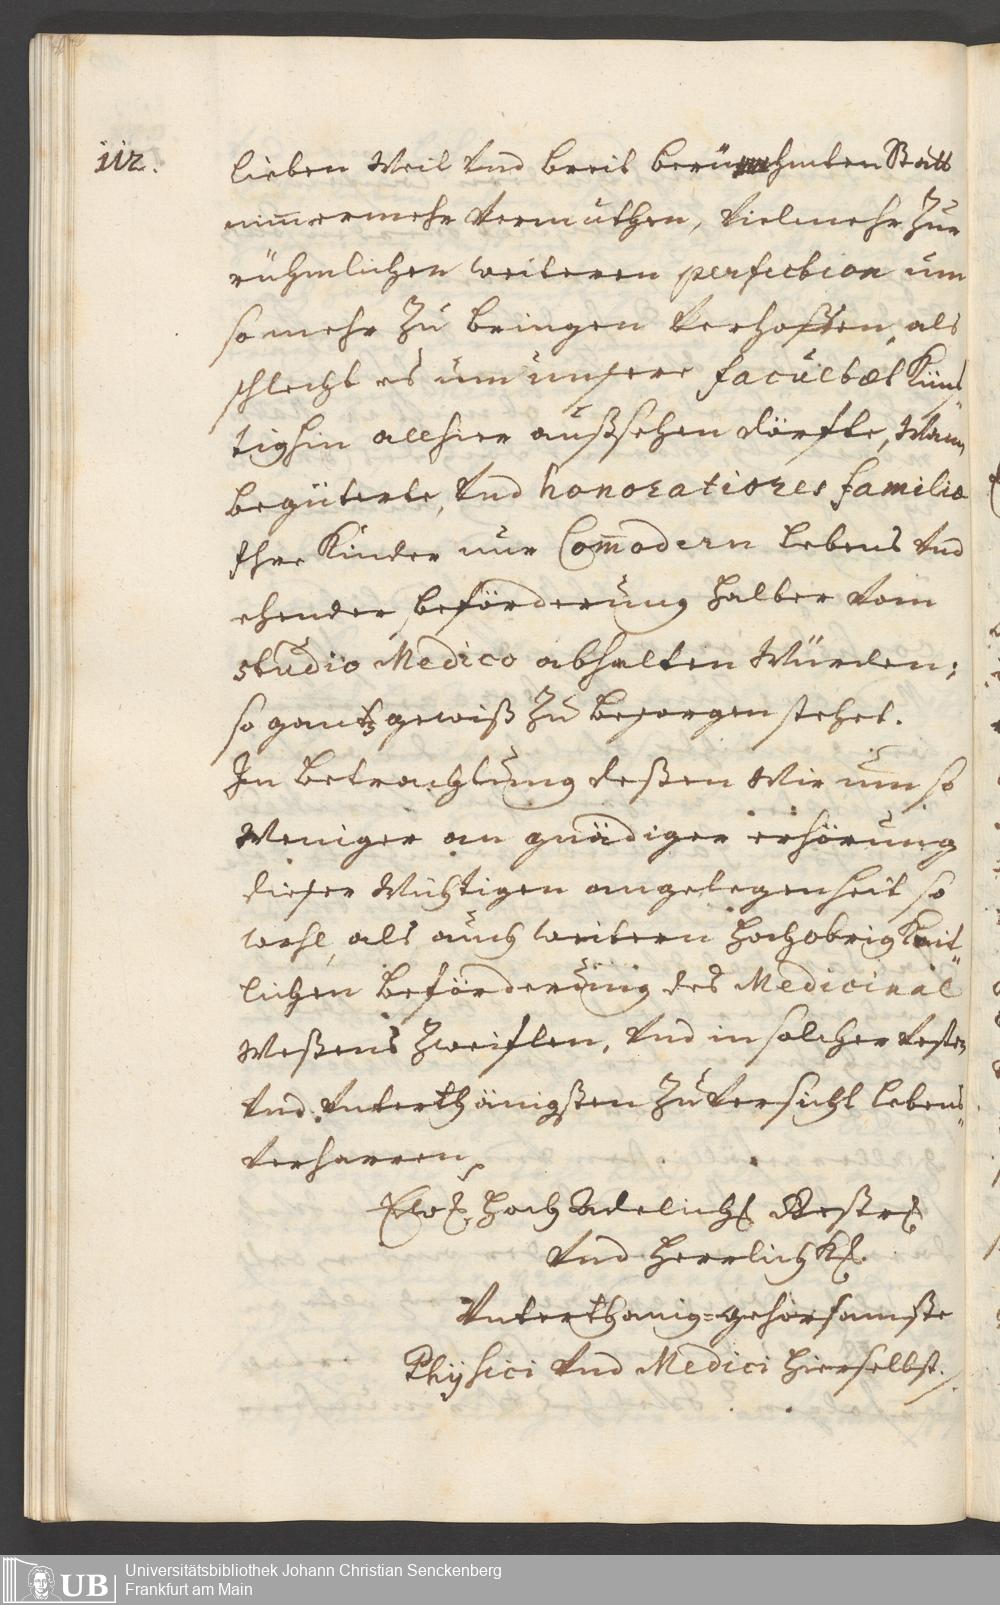 112.
lieben Weit und breit berühmbten Statt
nimmermehr vermuthen, vielmehr zur
rühmlichen weiteren perfection um
so mehr zu bringen verhoffen, als
schlecht es um unsere facultæt Künf„
tighin allhier außsehen dörfte, Wann
begüterte, und honoratiores familiæ
Ihre Kinder nur Com̄odern lebens und
ehender beförderung halber vom
studio Medico abhalten Würden;
so gantz gewiß zu besorgen stehet.
In betrachtung deßen Wir um so
Weniger an gnädiger erhörung
dieser Wichtigen angelegenheit so
wohl, als auch weitern hochobrigkeit„
lichen beförderung des Medicinal
Weßens zweiflen, und in solcher vesten
und unterthänigsten zuversicht lebens„
verharren,
Hoch Adelich Gestr
und Herrlichk.
Unterthanig=gehorsamste
Physici und Medici hierselbst.
UB
Universitätsbibliothek Johann Christian Senckenberg
Frankfurt am Main